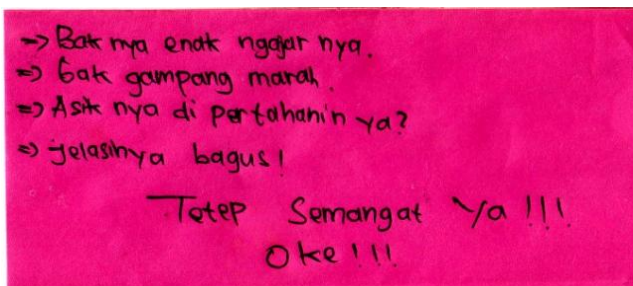 => Bak nya enak ngajar nya.
=> Gak gampang marah.
=> Asik nya di pertahanin ya?
=> jelasinya bagus!
Tetep Semangat Ya !!!
Oke !!!